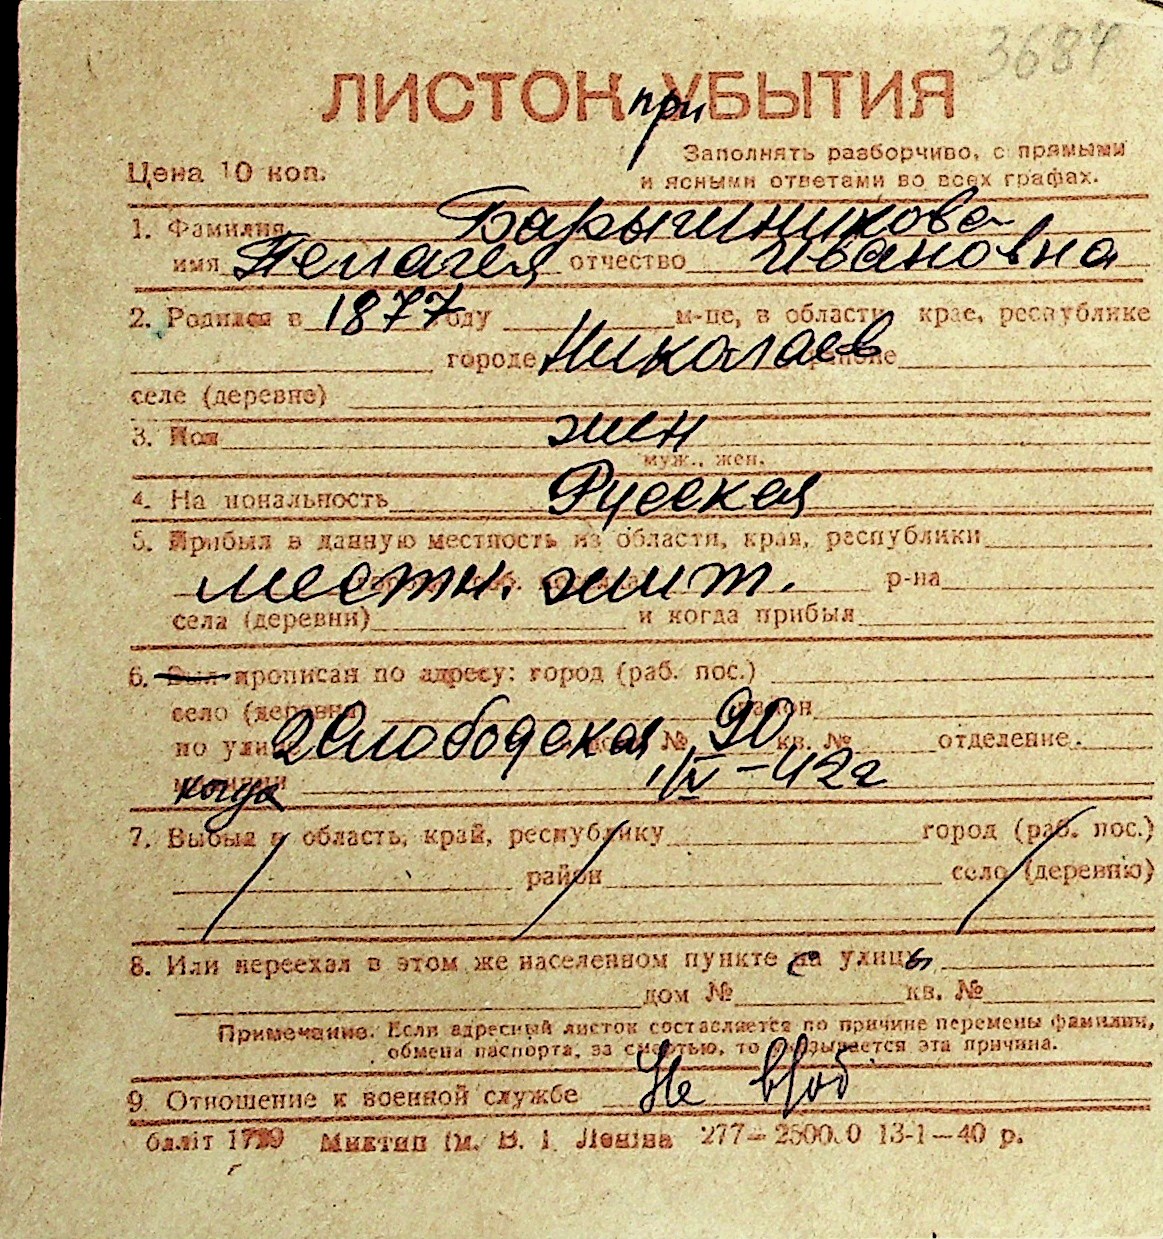 3684
ЛИСТОК при УБЫТИЯ
Заполнять разборчиво, с прямыми
Цена 10 коп.
и ясными ответами во всех графах.
1. Фамилия Барышникова
имя Пелагея отчество Ивановна
2. Родился в 1877 году м-це, в области, крае, республике
городе Николаев районе
селе (деревне)
3. Пол жен
муж., жен.
4. Национальность Русская
5. Прибыл в данную местность из области, края, республики
местн. жит. р-на
села (деревни) и когда прибыл
6. Был прописан по адресу: город (раб. пос.)
село (деревня) район
по улице 2 Слободская № 90 кв. № отделение
когда 1/IV-42г
7. Выбыл в область, край, республику город (раб. пос.)
район село (деревню)
8. Или переехал в этом же населенном пункте са улицы
дом № кв. №
Примечание. Если адресный листок составляется по причине перемены фамилии,
обмена паспорта, за смертью, то указывается эта причина.
9. Отношение к военной службе Не в/об
бліт 1799 Миктип ім. В. І. Леніна 277—25000 13-1—40 р.